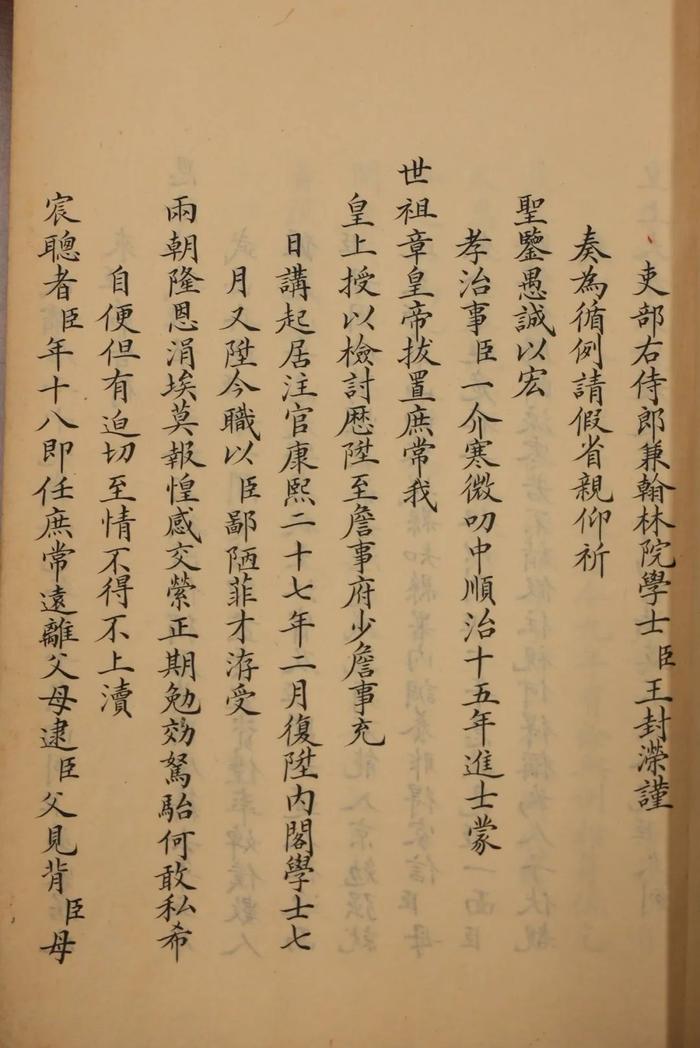 吏部右侍郎兼翰林院學士臣王封濚謹
奏為循例請假省親仰祈
聖鑒愚誠以宏
孝治事臣一介寒微叨中順治十五年進士蒙
世祖章皇帝拔置庶常我
皇上授以檢討歷陞至詹事府少詹事充
日講起居注官康熙二十七年二月復陞內閣學士七
月又陞今職以臣鄙陋菲才洊受
兩朝隆恩涓埃莫報惶感交縈正期勉効駑駘何敢私希
自便但有迫切至情不得不上瀆
宸聰者臣年十八即任庶常遠離父母逮臣父見背臣母